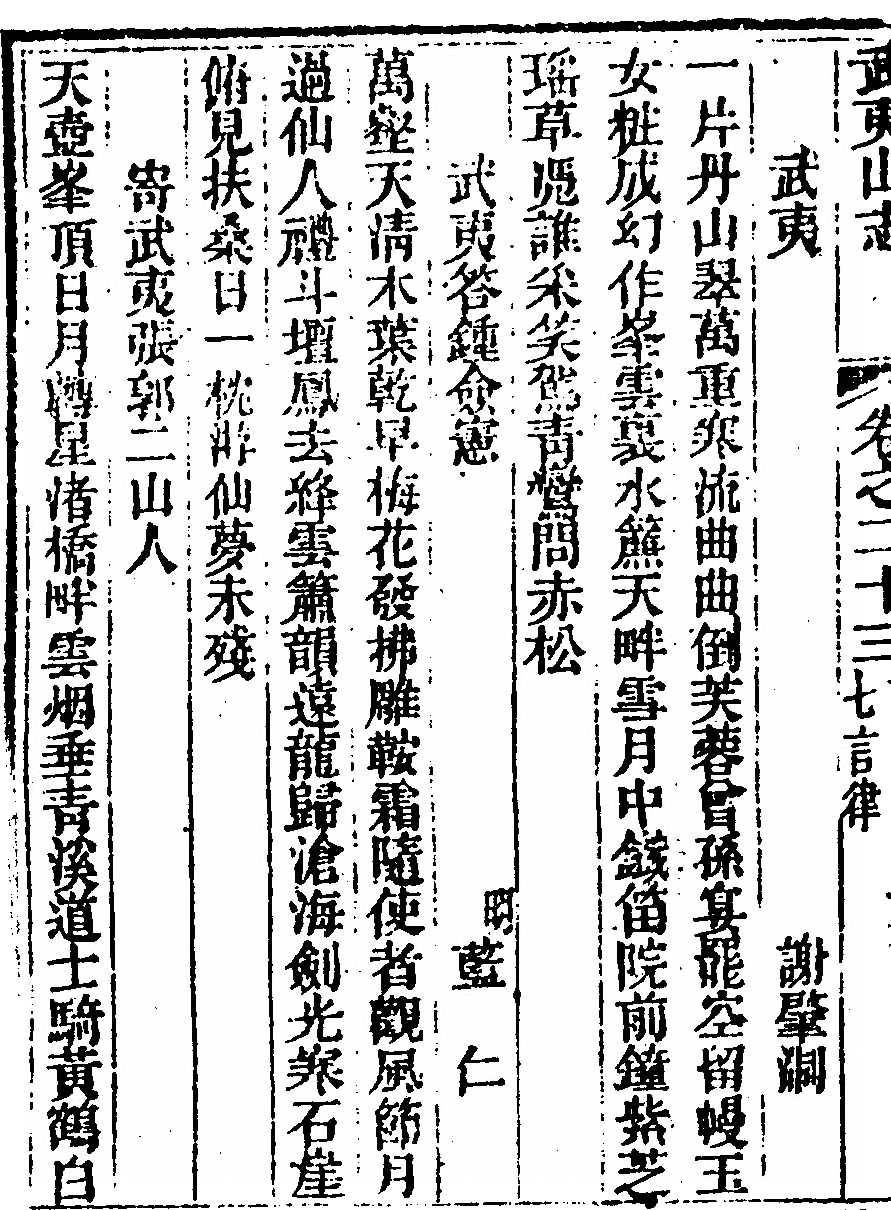 武夷山志 卷之二十三 七言律
武夷 謝肇淛
一片丹山翠萬重寒流曲曲倒芙蓉曾孫宴罷空留幔玉
女粧成幻作峯雲裏水簾天畔雪月中鐡笛院前鐘紫芝
瑶草凴誰采笑駕青鸞問赤松
武夷答鍾僉憲 明藍仁
萬壑天清木葉乾早梅花發拂雕鞍霜隨使者觀風節月
過仙人禮斗壇鳳去絳雲簫韻遠龍歸滄海劍光寒石崖
俯見扶桑日一枕游仙夢未殘
寄武夷張郭二山人
天壺峯頂日月轉星渚橋畔雲烟垂青溪道士騎黃鶴白